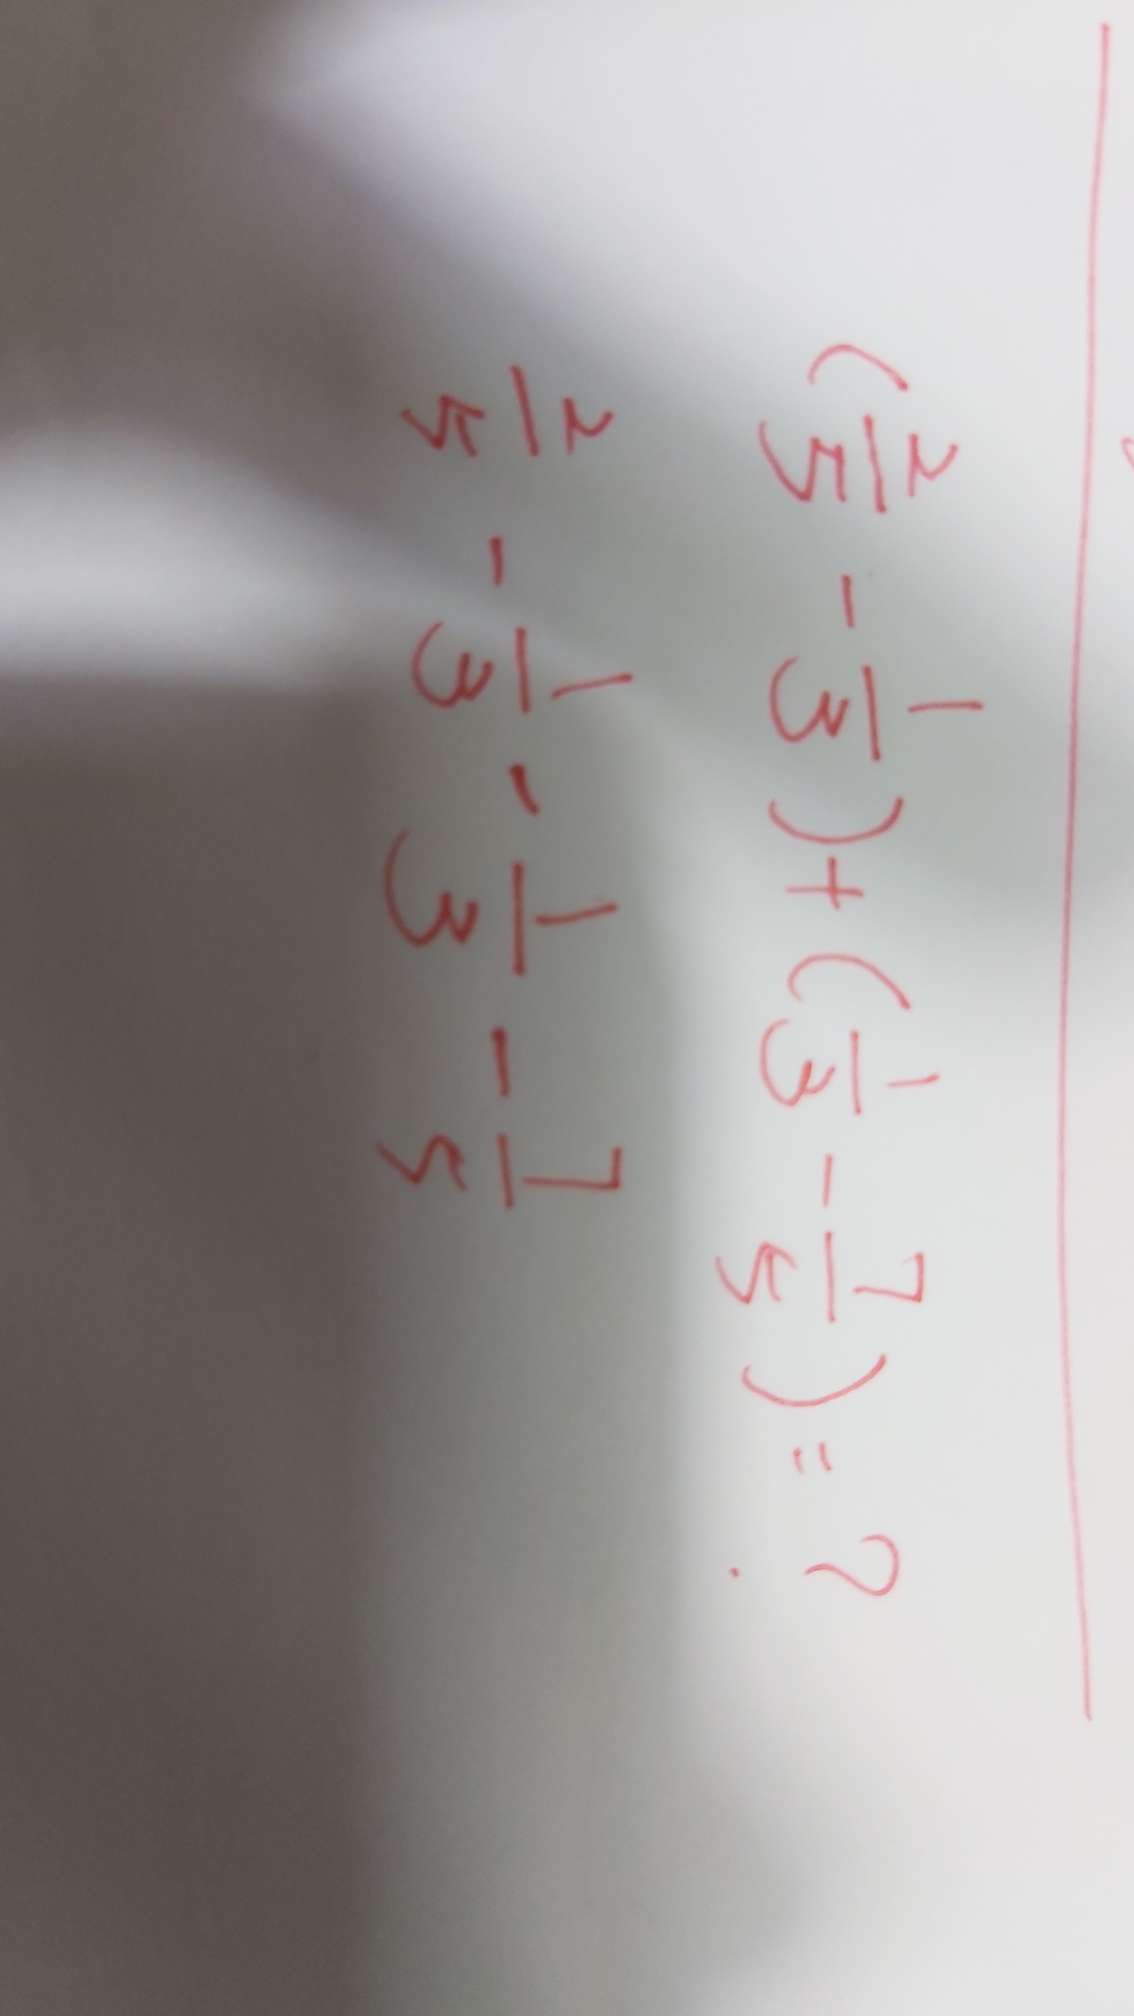 (2/5 - 1/3) + (1/3 - 7/5) = ?
2/5 - 1/3 - 1/3 - 7/5